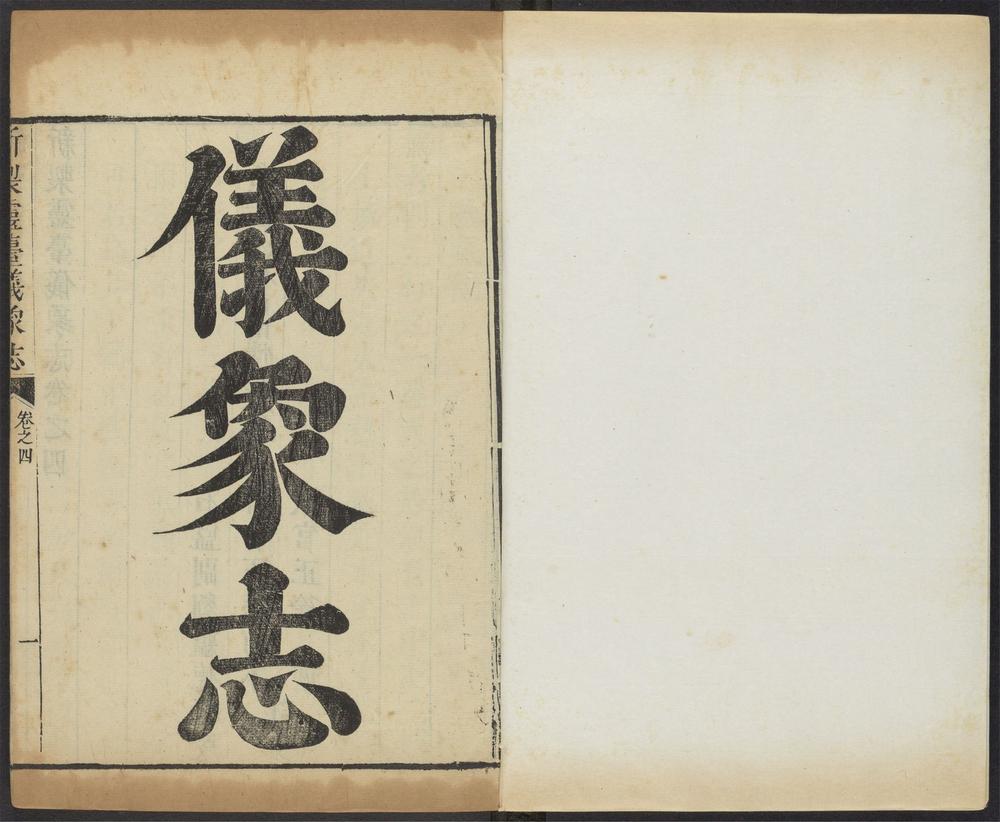 儀象志
新製靈臺儀象志
卷之四
一